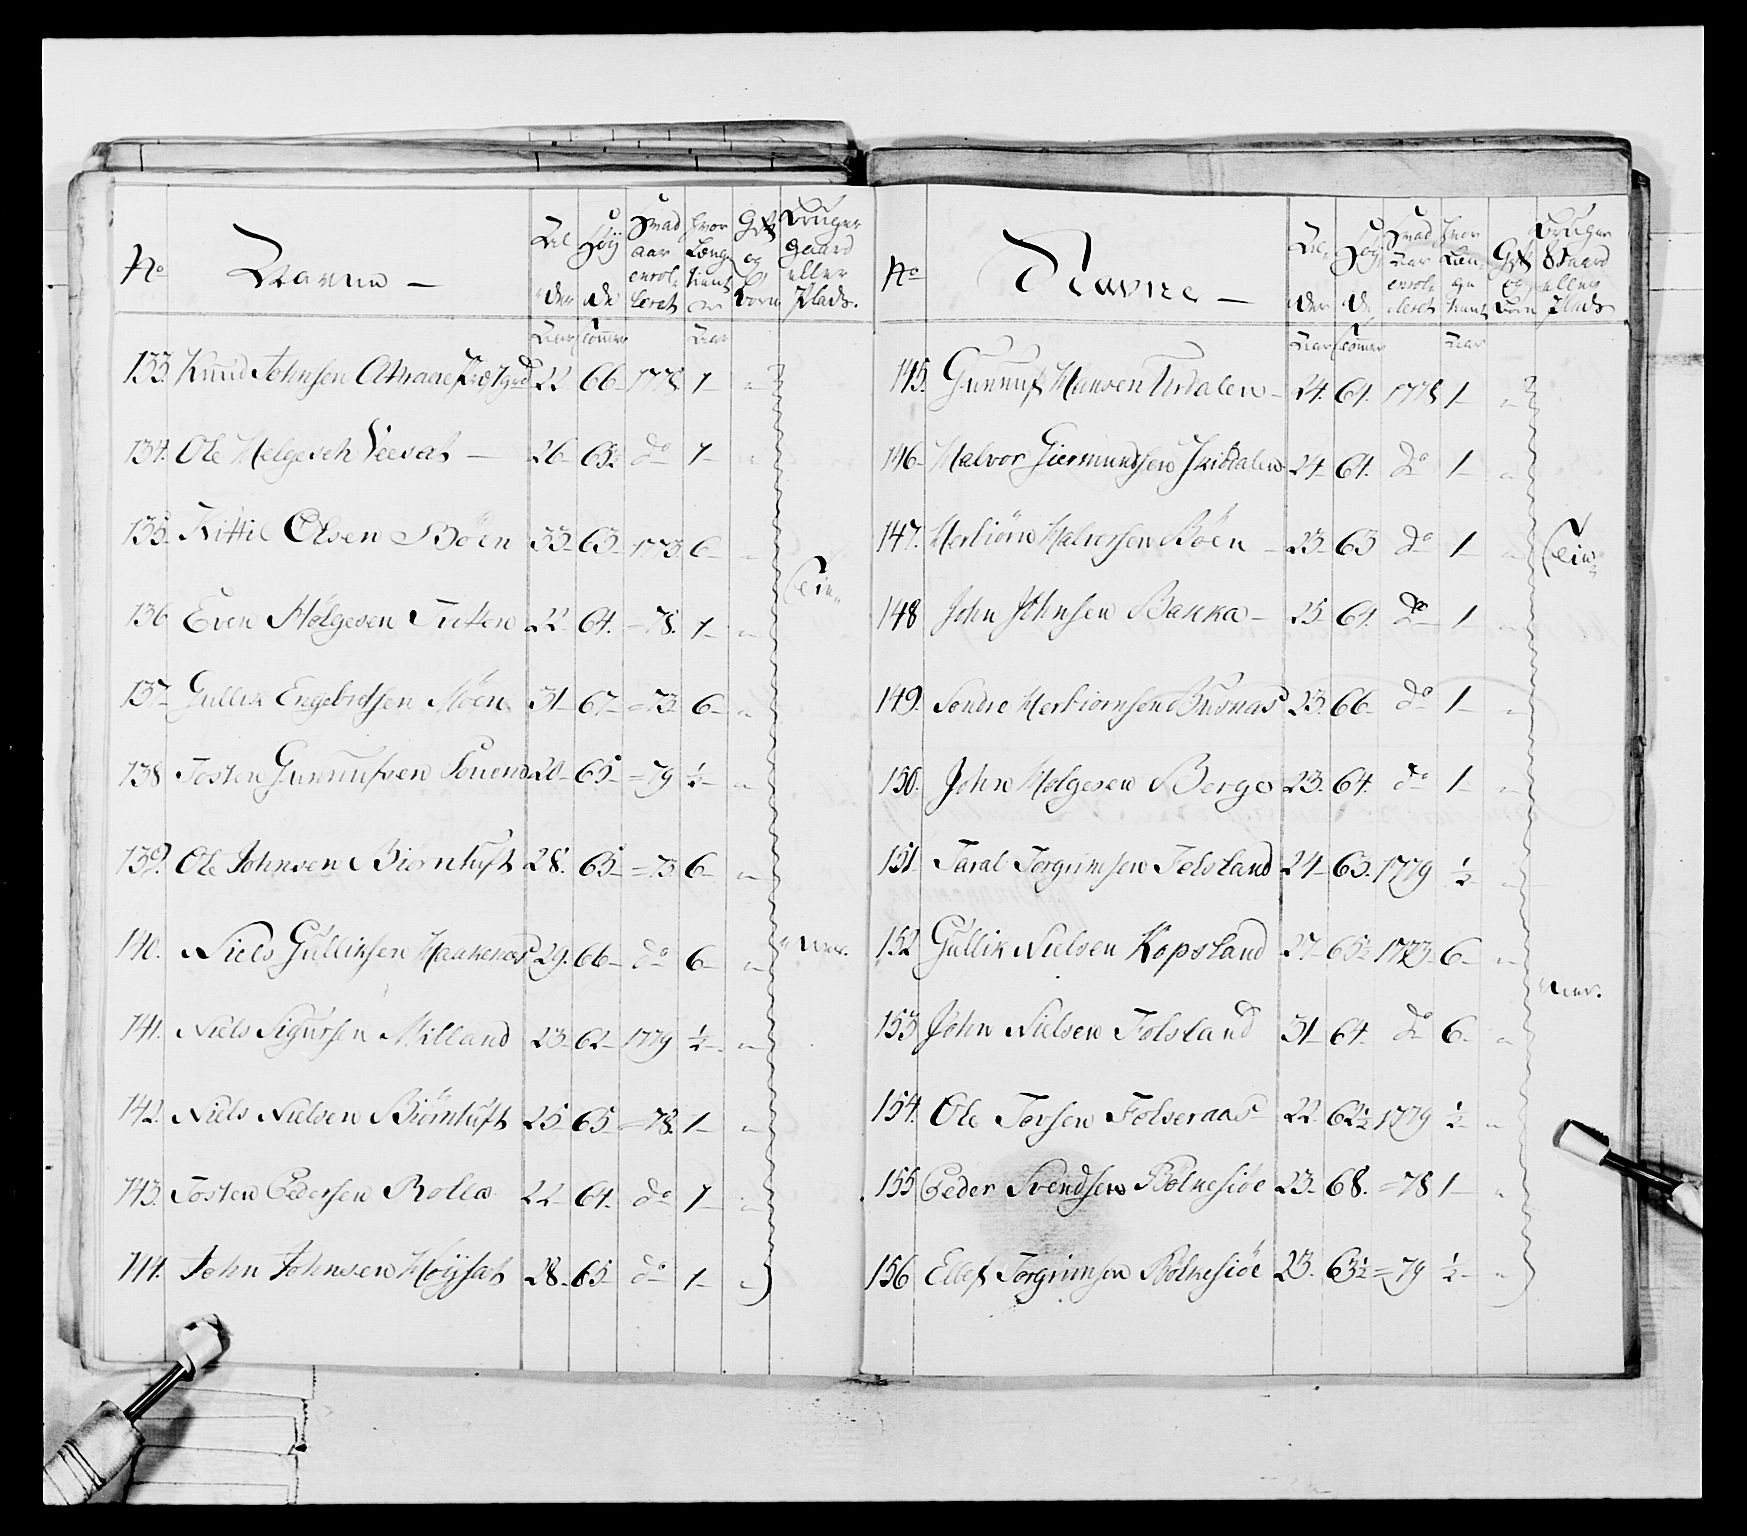 No Navne — Al- der Høy de Hvad aar enrol- leret hvor Længe tient Gift og Børn Bruger gaard eller Plads.
Aar Tommer Aar
133. Knud Johnsen 22 66 1778 1 "
134. Ole Helgesen Veesat — 26 65½ do 1 "
135. Kittil Olsen Böen 33 63 1773 6 "
136 Even Hølgesen Tveten 22 64. = 78. 1 "
137 Gullik Engebretsen Möen 31 67 = 73 6 "
138 Tosten Gunnufsen 20 65 = 79 ½ "
139. Ole Johnsen Biörntuft 28. 65 = 73 6 "
140. Niels Gulliksen Haakenas 29. 66 do 6 "
141. Niels Sigursen Milland 23 62 1779 ½ "
142. Niels Nielsen Biörntuft 25 65 = 78. 1 "
143. Tosten Pedersen Rolla 22 64. do 1 "
144. John Johnsen Höysat 28. 65 do 1 "
Ein
No Navne — Al- der Høy de Hvad Aar enrol- leret Hvor Læn- ge tient Gift og Børn Bruger Gaard eller Plads
Aar Tommer Aar
145. Gunnuf Hansen 24. 64. 1778 1 "
146 Halvor Giermundsen Skirdalen 24 64. do 1 "
147. Herbiörn Halvorsen Böen 23 63 do 1 "
148 John Johnsen Bakka 25 64. do 1 "
149. Sondre Herbiörnsen Busnas 23. 66 do 1 "
150. John Holgesen Berge 23. 64. do 1 "
151 Taral Torgrimsen 24 63. 1779 ½ "
152 Gullik Nielsen Kopsland 27 65½ 1773 6 "
153 John Nielsen 31 64 do 6 "
154. Ole Torsen Folseraas 22 62½ 1779 ½ "
155 Peder Svendsen Bölkesiöe 23 68. = 78 1 "
156 Ellef Torgrimsen Bölkesiöe 23. 63½ = 79 ½ "
Ein